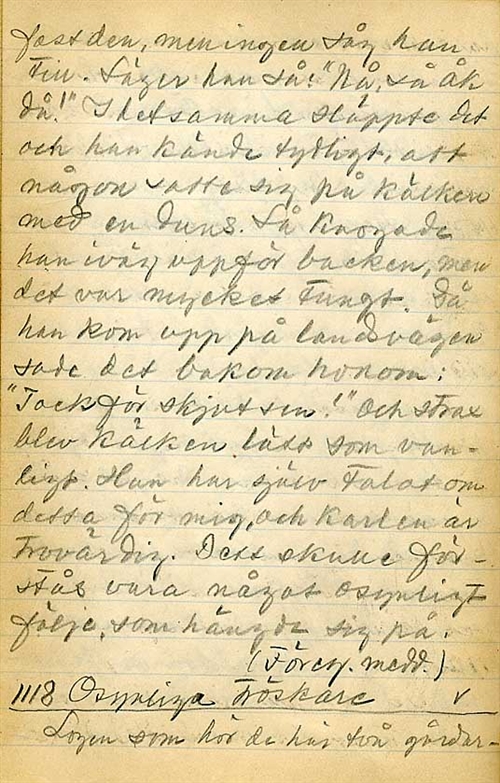 fast den, men ingen såg han
till. Säger han så: "Nå, så åk
då!" I detsamma släppte det
och han kände tydligt, att
någon satte sig på kälken
med en duns. Så knogade
han iväg uppför backen, men
det var mycket tungt. Då
han kom upp på landsvägen
sade det bakom honom:
"Tack för skjutsen!" Och strax
blev kälken lätt som van-
ligt. Han har själv talat om
detta för mig, och karlen är
trovärdig. Dett skulle för-
stås vara något osynligt
följe, som hängde sig på.
(Föreg. medd.)
1118 Osynliga tröskare v
Logen som hör de här två gårdar-